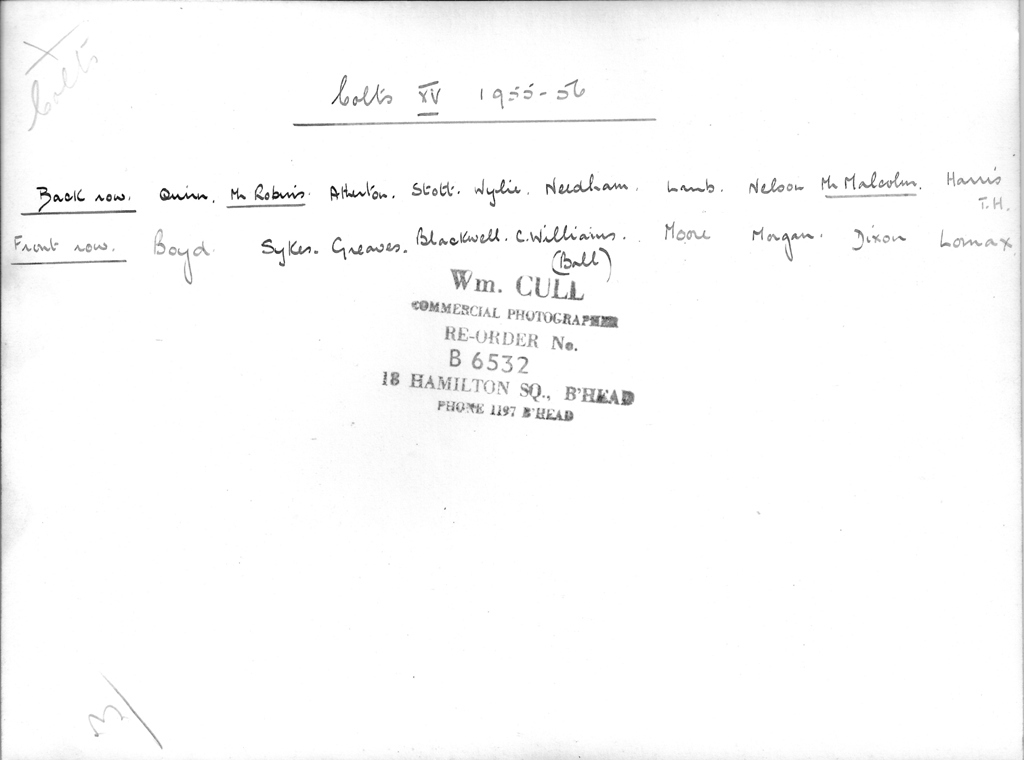 Colts
Colts XV 1955-56
Back row. Quinn. Mr Robins. Atherton. Stott. Wylie. Needham. Lamb. Nelson Mr Malcolm. Harris T.H.
Front row. Boyd. Sykes. Greaves. Blackwell. C. Williams. Moore Morgan. Dixon Lomax.
(Ball)
Wm. CULL
COMMERCIAL PHOTOGRAPHER
RE-ORDER No.
B 6532
18 HAMILTON SQ., B'HEAD
PHONE 1197 B'HEAD